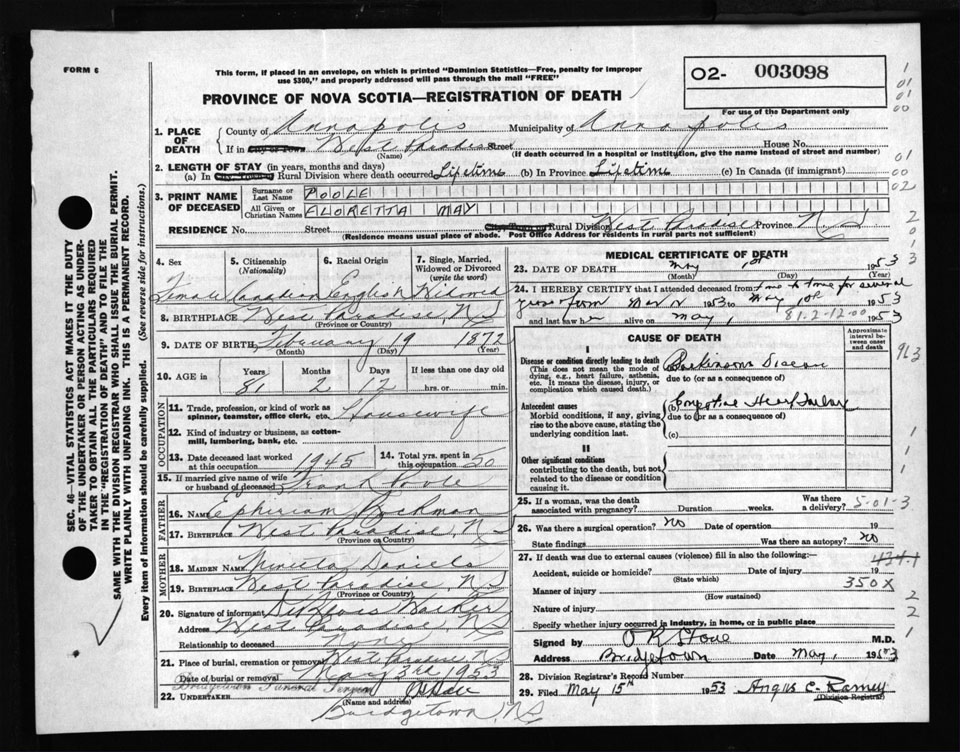 FORM 6
This form, if placed in an envelope, on which is printed "Dominion Statistics—Free, penalty for improper
use $300," and properly addressed will pass through the mail "FREE"
O2- 003098
PROVINCE OF NOVA SCOTIA—REGISTRATION OF DEATH
For use of the Department only
1. PLACE OF DEATH County of Annapolis Municipality of Annapolis
If in City or Town West Paradise Street House No.
(Name) (If death occurred in a hospital or institution, give the name instead of street and number)
2. LENGTH OF STAY (in years, months and days)
(a) In City Town or Rural Division where death occurred Lifetime (b) In Province Lifetime (c) In Canada (if immigrant)
3. PRINT NAME OF DECEASED Surname or Last Name POOLE
All Given or Christian Names FLORETTA MAY
RESIDENCE No. Street City Town or Rural Division West Paradise Province N.S
(Residence means usual place of abode. Post Office Address for residents in rural parts not sufficient)
4. Sex Female
5. Citizenship (Nationality) Canadian
6. Racial Origin English
7. Single, Married, Widowed or Divorced (write the word) Widowed
8. BIRTHPLACE West Paradise, N.S
(Province or Country)
9. DATE OF BIRTH February 19 1872
(Month) (Day) (Year)
10. AGE in Years 81 Months 2 Days 12 If less than one day old hrs. or min.
OCCUPATION
11. Trade, profession, or kind of work as spinner, teamster, office clerk, etc. Housewife
12. Kind of industry or business, as cotton-mill, lumbering, bank, etc.
13. Date deceased last worked at this occupation 1945
14. Total yrs. spent in this occupation 50
15. If married give name of wife or husband of deceased Frank Poole
FATHER
16. NAME Ephiriam
17. BIRTHPLACE West Paradise, N.S
(Province or Country)
MOTHER
18. MAIDEN NAME Daniels
19. BIRTHPLACE West Paradise, N.S
(Province or Country)
20. Signature of informant
Address West Paradise, N.S
Relationship to deceased None
21. Place of burial, cremation or removal West Paradise N.S
May 3rd, 1953
22. UNDERTAKER Bridgetown Funeral
(Name and address)
Bridgetown, N.S
MEDICAL CERTIFICATE OF DEATH
23. DATE OF DEATH May 1st 1953
(Month) (Day) (Year)
24. I HEREBY CERTIFY that I attended deceased from time to time for several
years from 1953 to May 1st 1953
and last saw her alive on May 1 1953
81.2-12.00
CAUSE OF DEATH
Approximate interval between onset and death
I
Disease or condition directly leading to death
(This does not mean the mode of dying, e.g., heart failure, asthenia, etc. It means the disease, injury, or complication which caused death.)
(a) Parkinsons Disease
due to (or as a consequence of)
Antecedent causes
Morbid conditions, if any, giving rise to the above cause, stating the underlying condition last.
(b) Congestive Heart Failure
due to (or as a consequence of)
(c)
II
Other significant conditions
contributing to the death, but not related to the disease or condition causing it.
25. If a woman, was the death associated with pregnancy? Duration weeks. Was there a delivery?
5-01-3
26. Was there a surgical operation? no Date of operation 19
State findings Was there an autopsy? no
27. If death was due to external causes (violence) fill in also the following:—
434.1
Accident, suicide or homicide? Date of injury 19
(State which)
350X
Manner of injury
(How sustained)
Nature of injury
Specify whether injury occurred in industry, in home, or in public place
Signed by M.D.
Address Bridgetown Date May 1 1953
28. Division Registrar's Record Number
29. Filed May 15th 1953 Angus C. Ramey
(Division Registrar)
SEC. 46—VITAL STATISTICS ACT MAKES IT THE DUTY
OF THE UNDERTAKER OR PERSON ACTING AS UNDER-
TAKER TO OBTAIN ALL THE PARTICULARS REQUIRED
IN THE "REGISTRATION OF DEATH" AND TO FILE THE
SAME WITH THE DIVISION REGISTRAR WHO SHALL ISSUE THE BURIAL PERMIT.
WRITE PLAINLY WITH UNFADING INK. THIS IS A PERMANENT RECORD.
Every item of information should be carefully supplied. (See reverse side for instructions.)